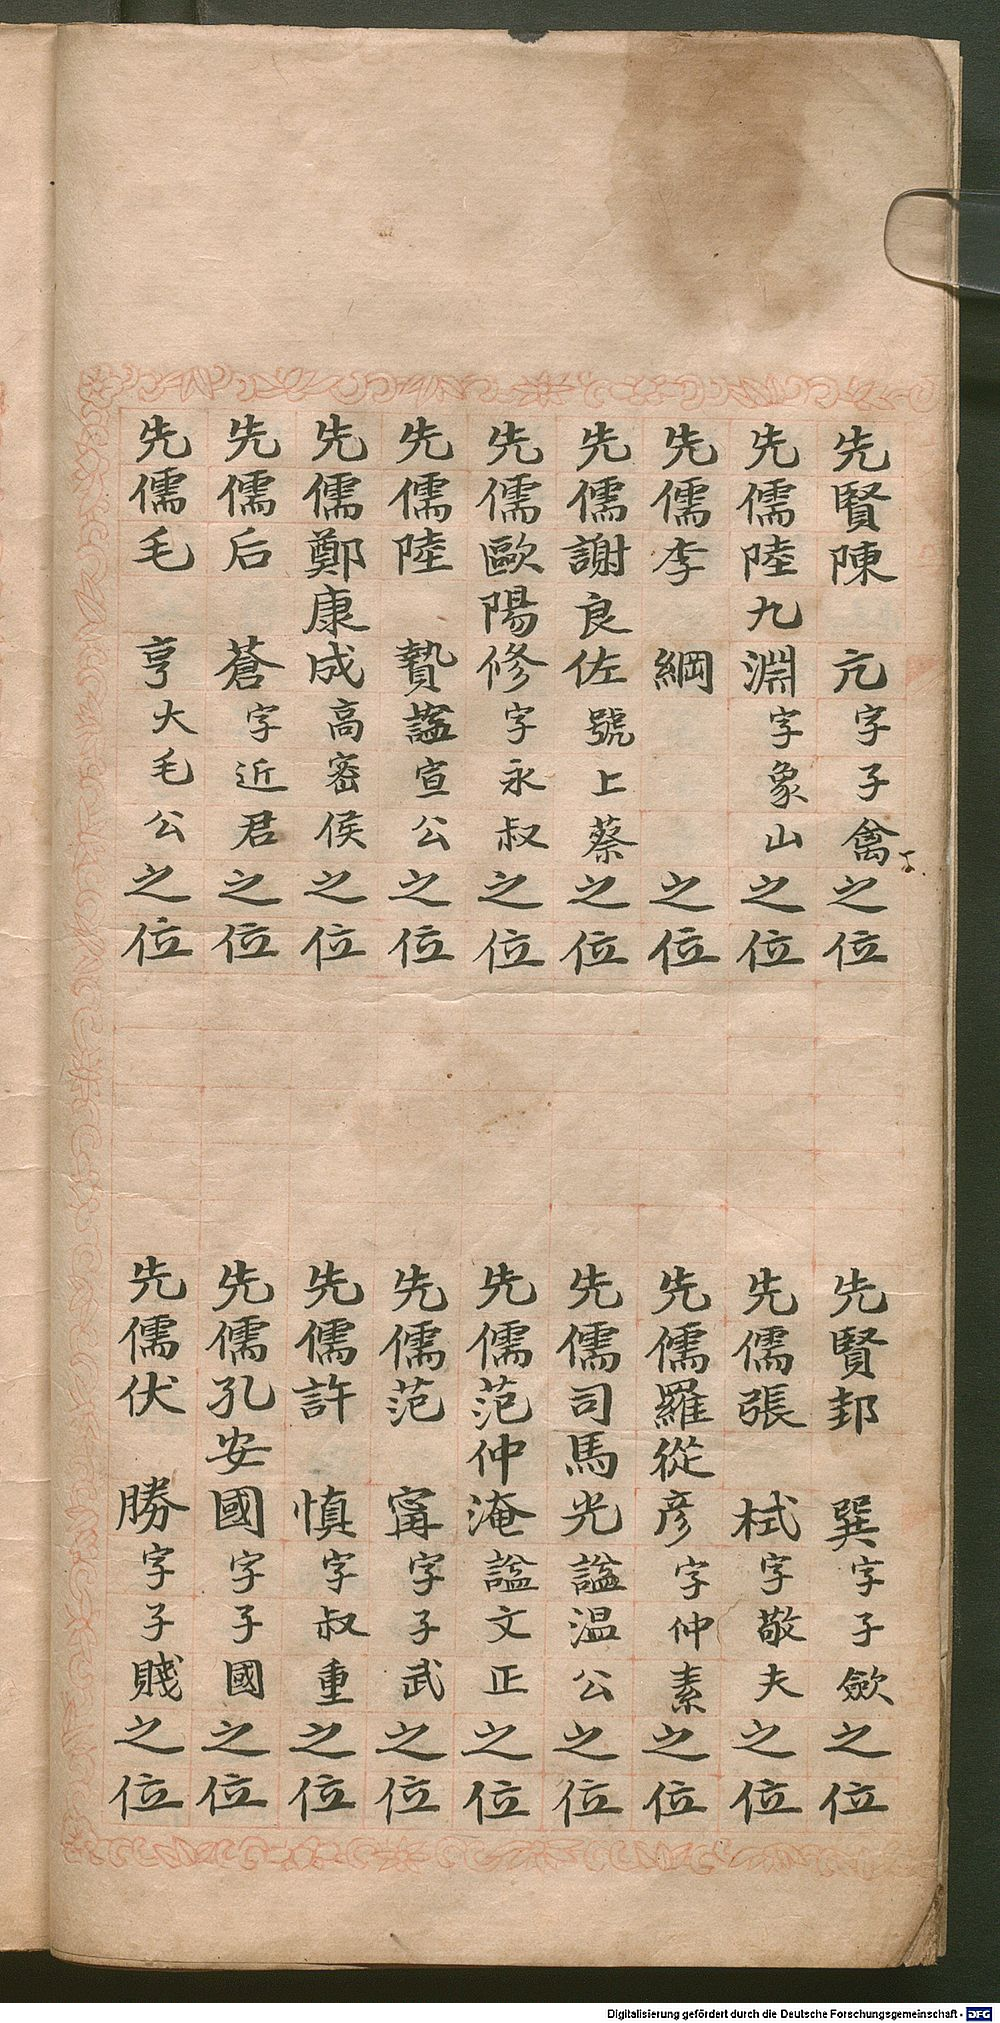 先賢陳　亢字子禽之位
先儒陸九淵字象山之位
先儒李　綱之位
先儒謝良佐號上蔡之位
先儒歐陽修字永叔之位
先儒陸　贄謚宣公之位
先儒鄭康成高密侯之位
先儒后　蒼字近君之位
先儒毛　亨大毛公之位
先賢邽　巽字子歛之位
先儒張　栻字敬夫之位
先儒羅從彥字仲素之位
先儒司馬光謚温公之位
先儒范仲淹謚文正之位
先儒范　甯字子武之位
先儒許　慎字叔重之位
先儒孔安國字子國之位
先儒伏　勝字子賤之位
Digitalisierung gefördert durch die Deutsche Forschungsgemeinschaft - DFG